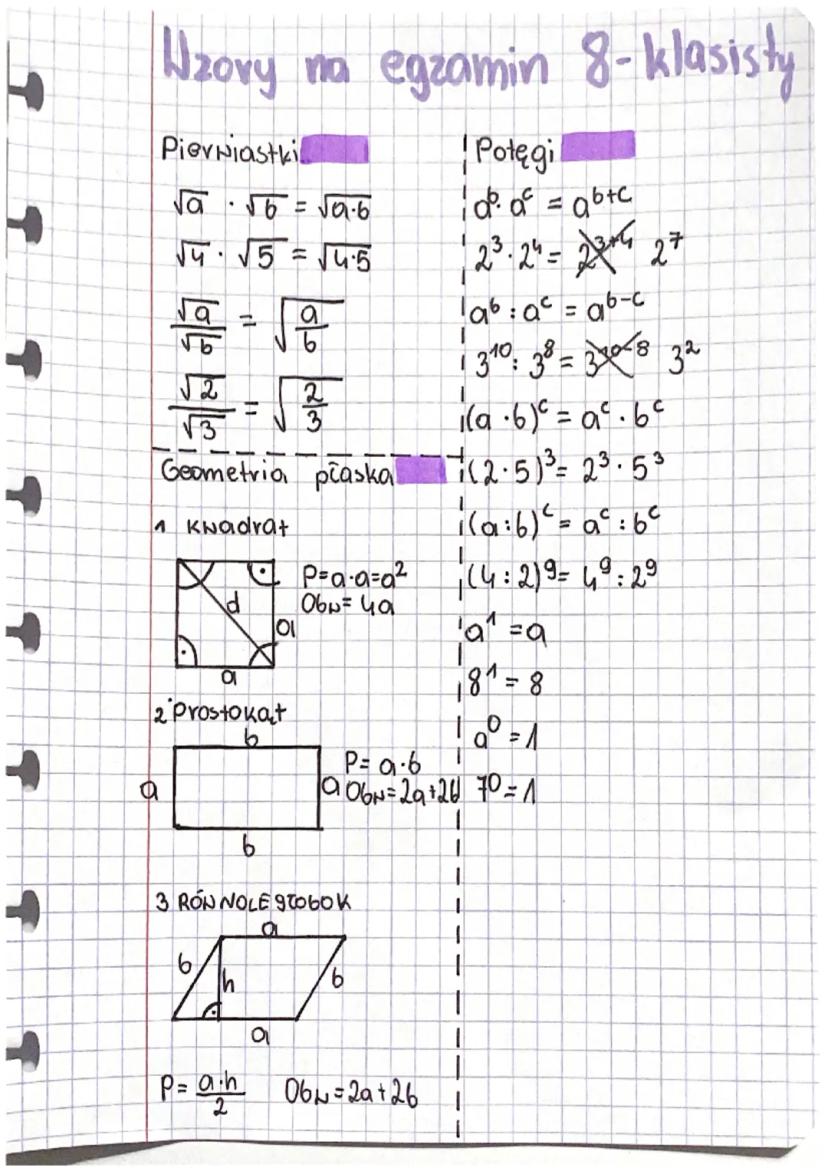 Wzory na egzamin 8-klasisty
Pierwiastki
√a · √b = √a·b
√4 · √5 = √4·5
√a/√b = √(a/b)
√2/√3 = √(2/3)
Geometria płaska
1 Kwadrat
d
a
a
P=a·a=a²
Obw=4a
2 Prostokąt
b
a
a
b
P=a·b
Obw=2a+2b
3 RÓWNOLEGŁOBOK
a
b
h
b
a
P=a·h/2 Obw=2a+2b
Potęgi
aᵇ·aᶜ = aᵇ⁺ᶜ
2³·2⁴= 2³⁺⁴ 2⁷
aᵇ:aᶜ = aᵇ⁻ᶜ
3¹⁰:3⁸= 3¹⁰⁻⁸ 3²
(a·b)ᶜ = aᶜ·bᶜ
(2·5)³= 2³·5³
(a:b)ᶜ= aᶜ:bᶜ
(4:2)⁹= 4⁹:2⁹
a¹=a
8¹=8
a⁰=1
7⁰=1